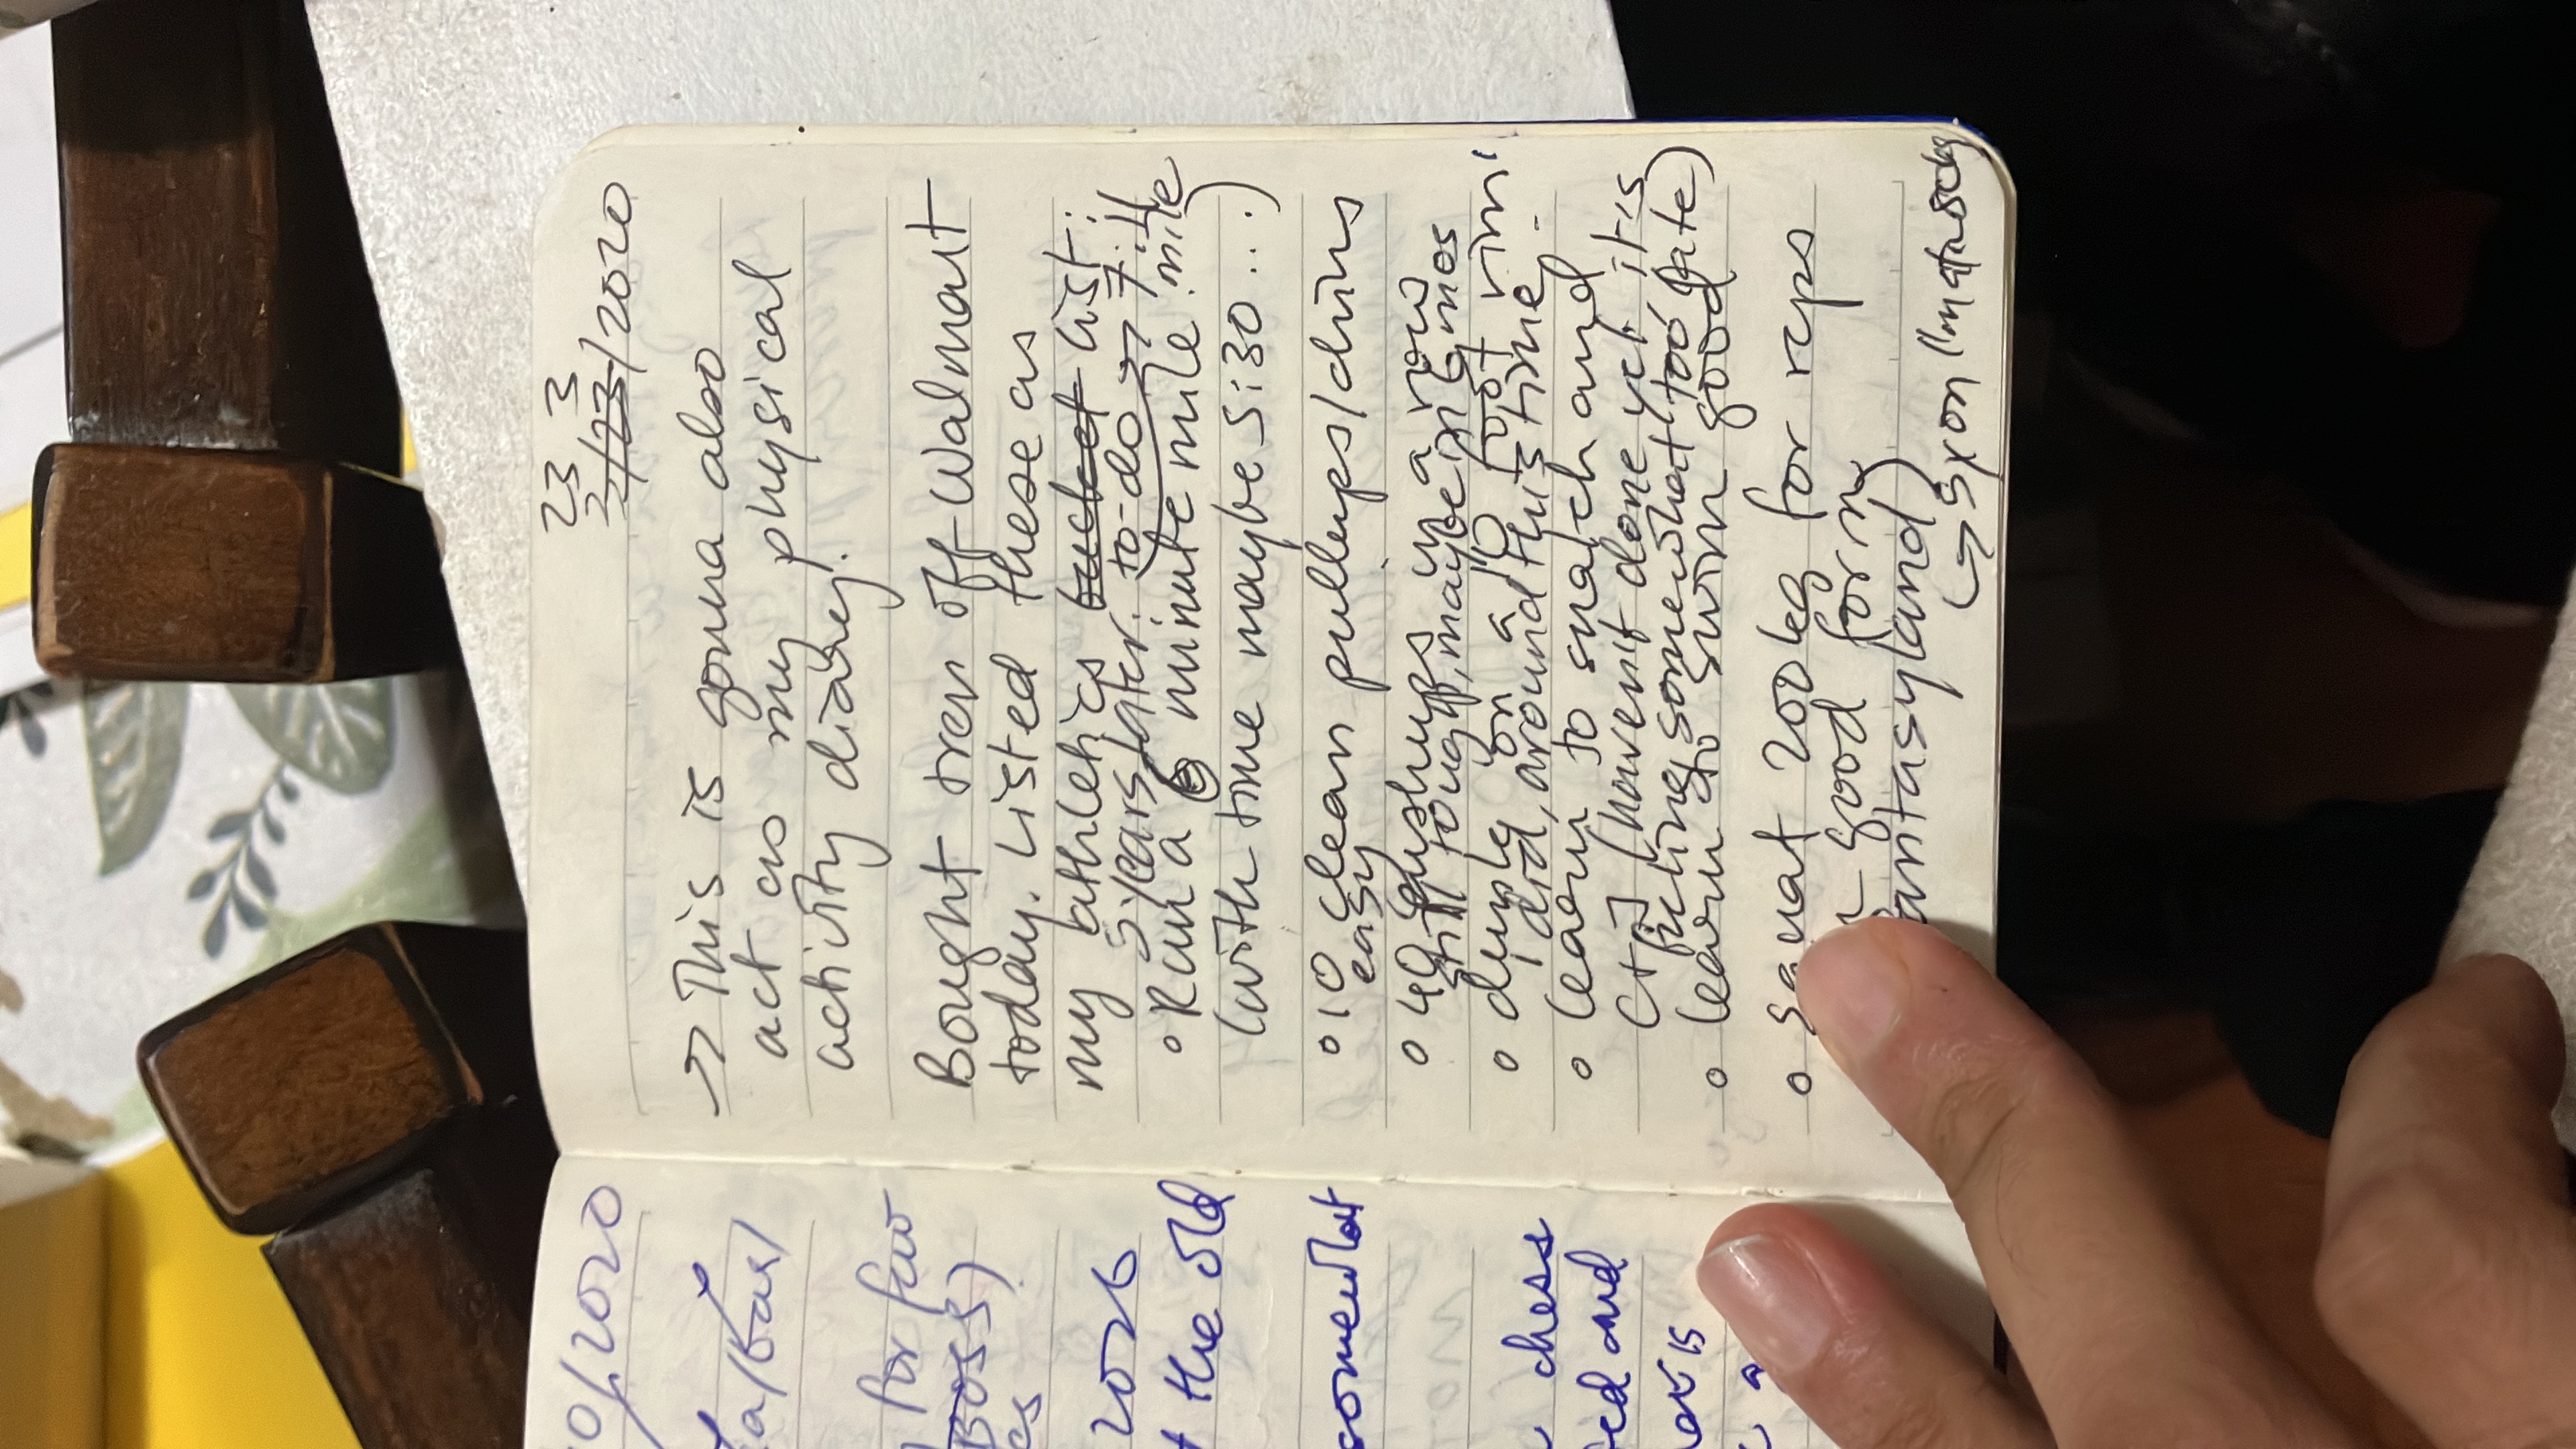 23 3
2/23/2020
→ This is gonna also
act as my physical
activity diarey.
Bought tren off Walmart
today. Listed these as
my athletics bucket list:
5 years later: to-do
• Run a 6 minute mile
(with time maybe 5:30...)
• 10 clean pullups/chins
easy
• 40 pushups in a row
still tough, maybe in 6 mos
• dunk on a 10 foot rim
did, around this time.
• learn to snatch and
C+J (havent done yet it's
fucking somewhat too late)
• learn to swim good
• squat 200kg for reps
good form
fantasyland)
↳ 3x on
10/2020
for few
BOSS)
2026
the old
somewhat
chess
and
is
a